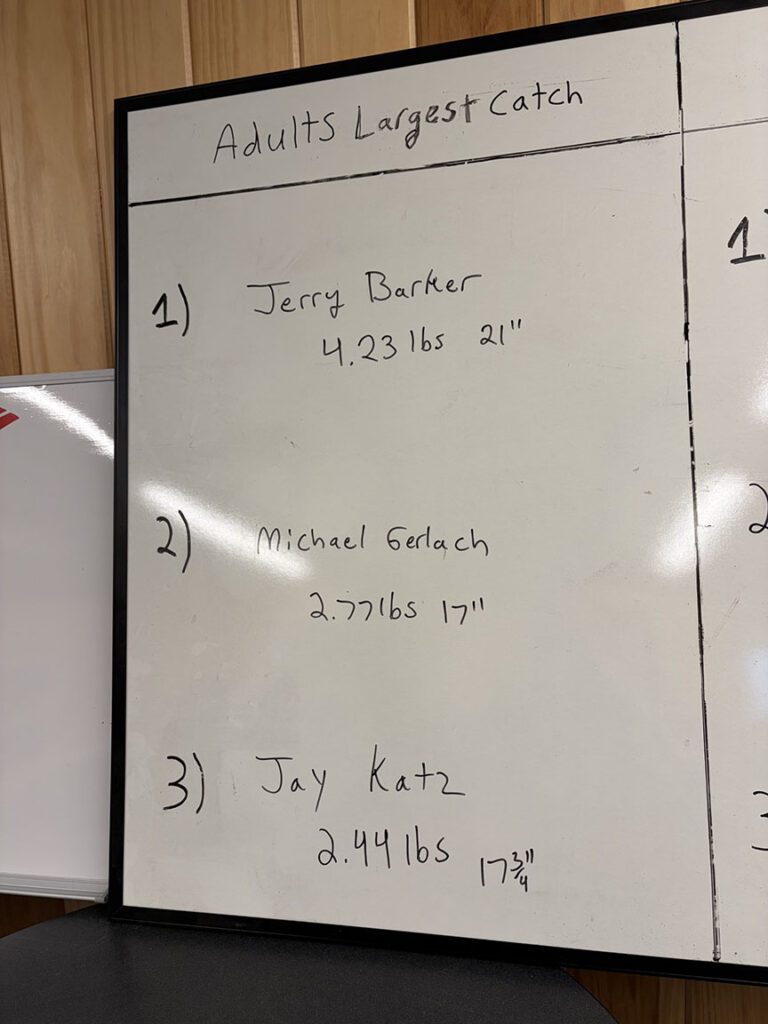 Adults Largest Catch
1) Jerry Barker
4.23 lbs 21"
2) Michael Gerlach
2.77 lbs 17"
3) Jay Katz
2.44 lbs 17 3/4"
1)
2
3